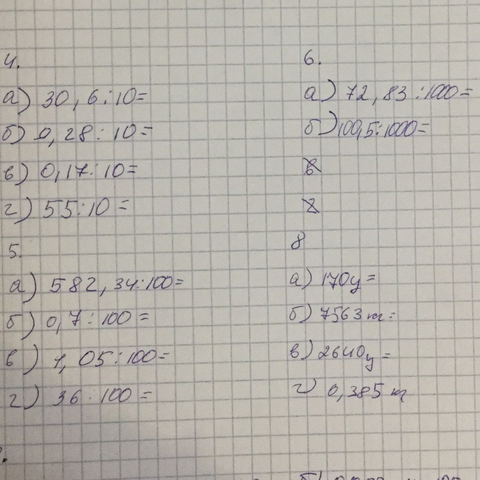 4.
а) 30,6:10=
б) 0,28:10=
в) 0,17:10=
г) 55:10=
5.
а) 582,34:100=
б) 0,7:100=
в) 1,05:100=
г) 36:100=
6.
а) 72,83:1000=
б) 100,5:1000=
в
г
8
а) 170ц=
б) 7563 кг=
в) 2640ц=
г) 0,385 т